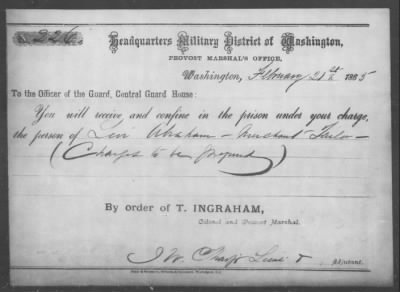 226
Headquarters Military District of Washington,
PROVOST MARSHAL'S OFFICE,
Washington, February 21st 1865
To the Officer of the Guard, Central Guard House:
You will receive and confine in the prison under your charge,
the person of Levi Abraham - Merchant Tailor -
(Charges to be prepared)
By order of T. INGRAHAM,
Colonel and Provost Marshal.
Adjutant.